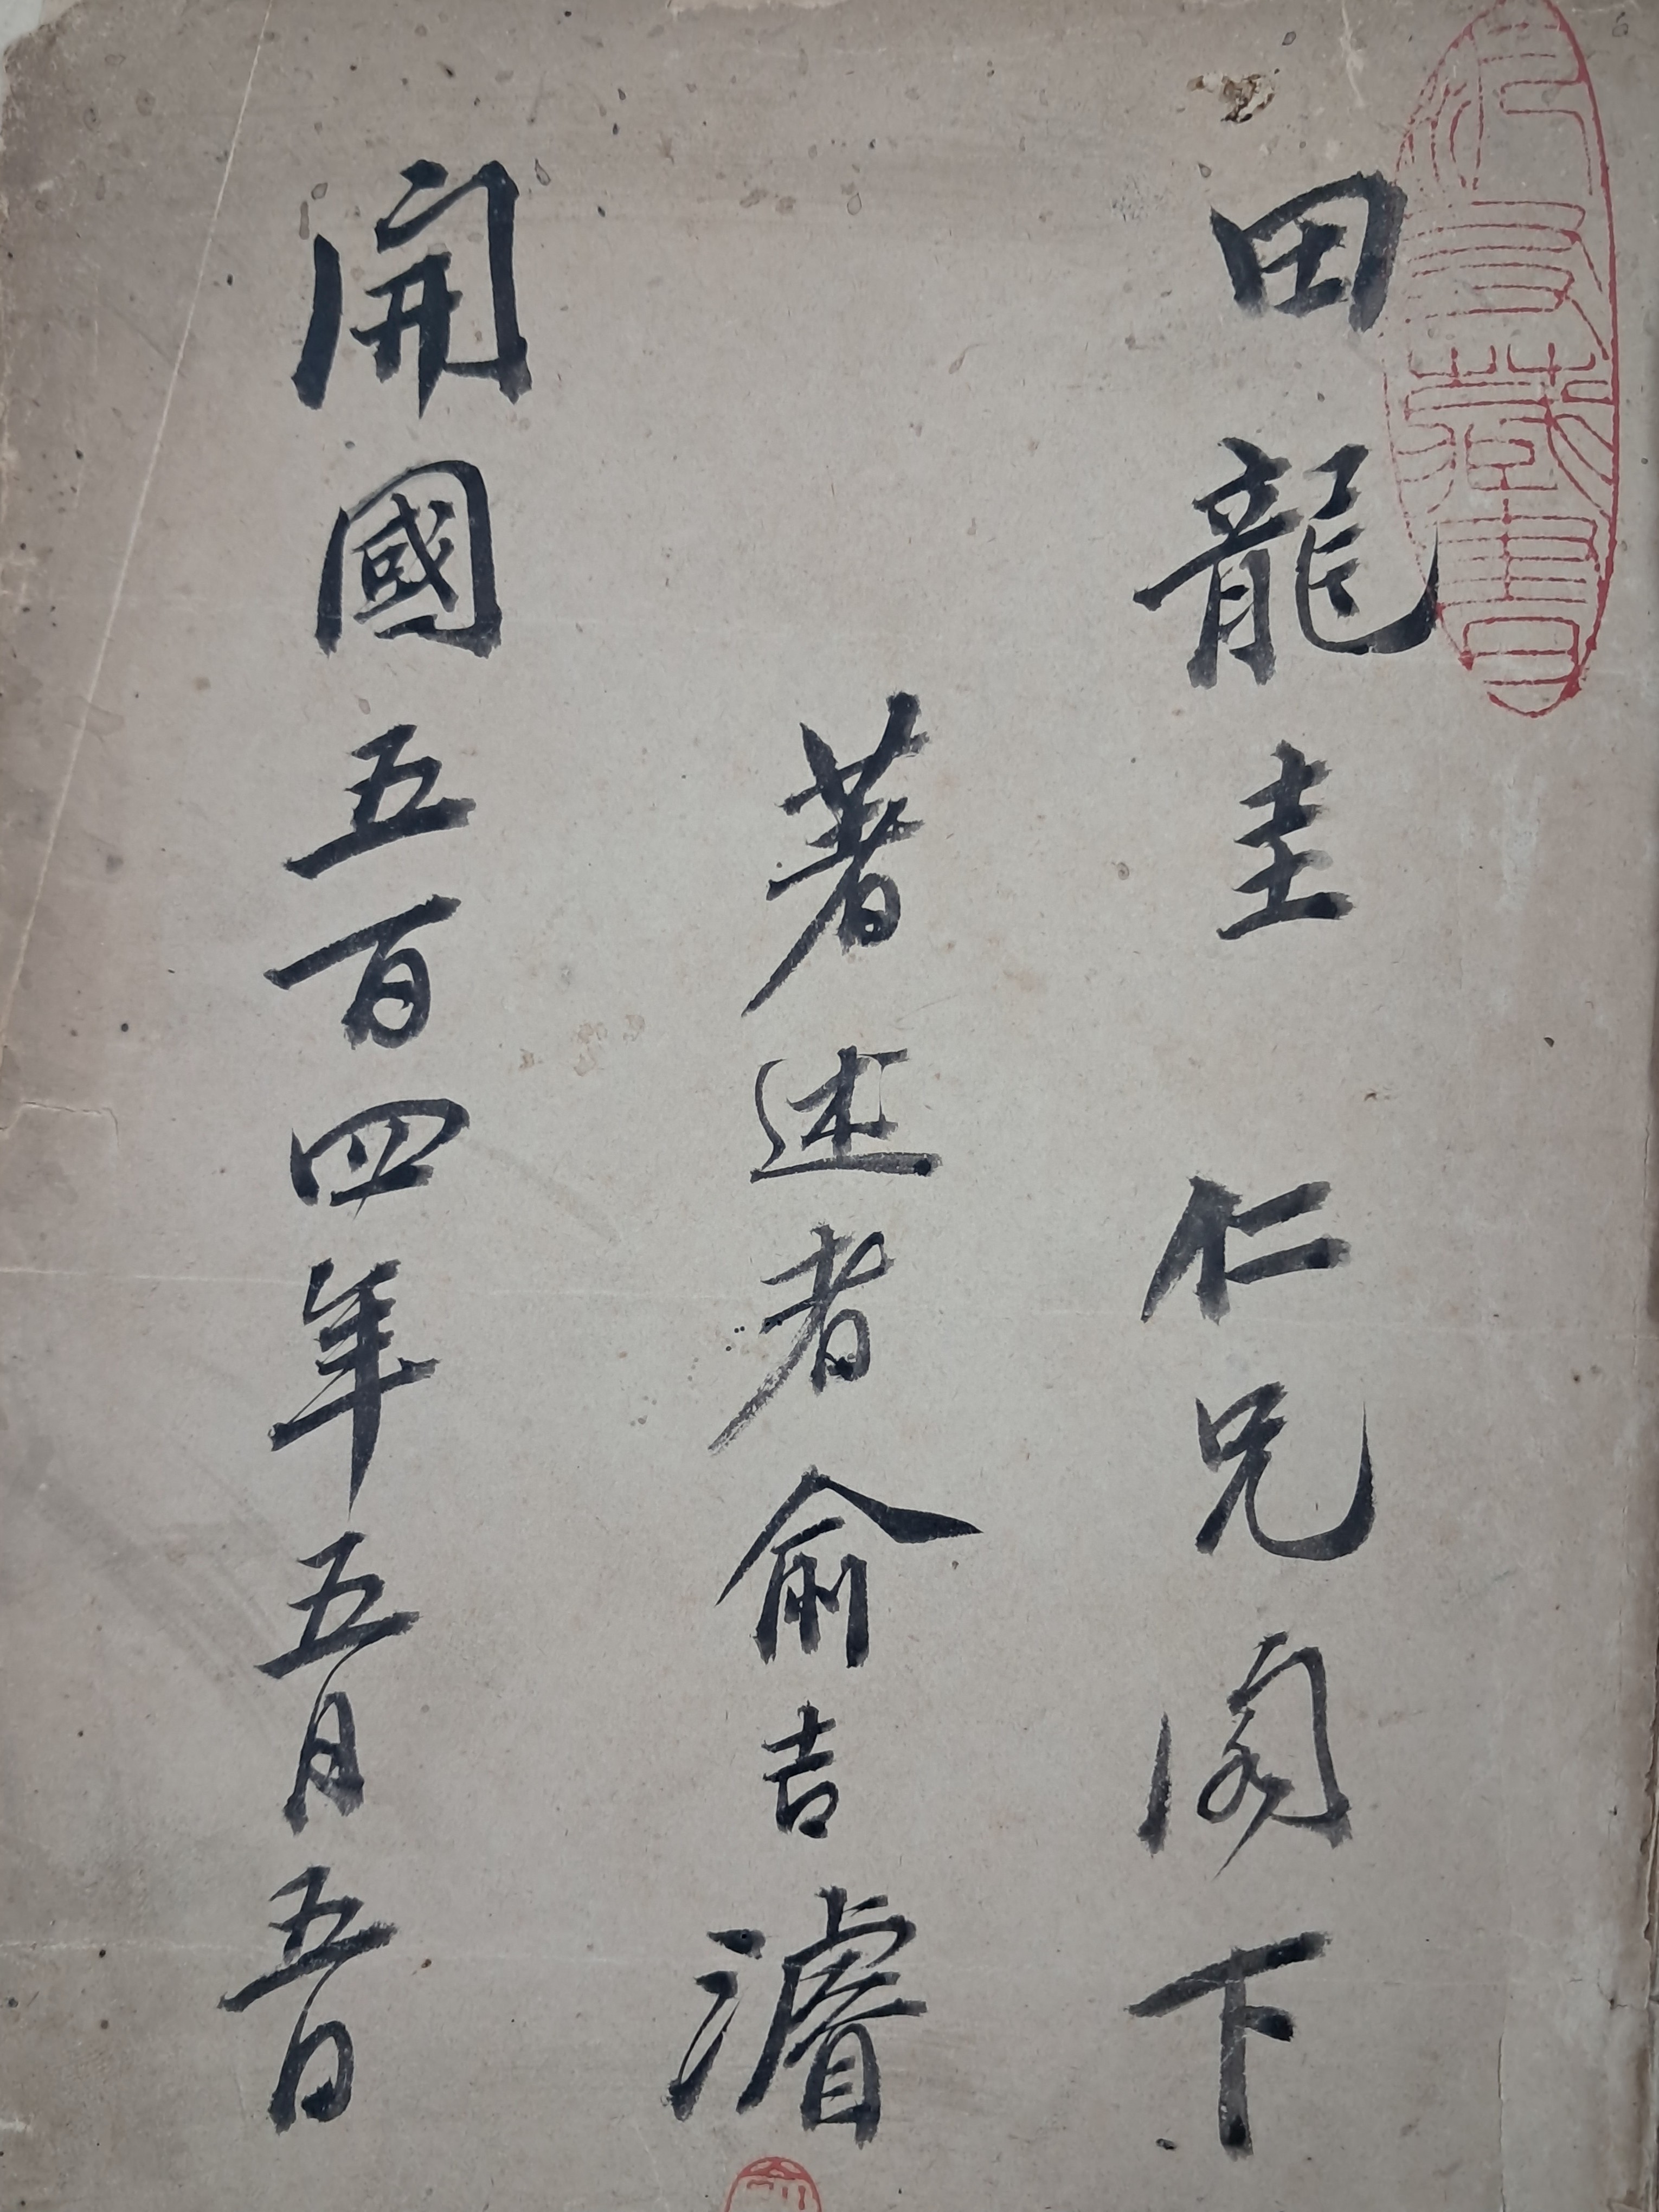 田龍圭 仁兄閣下
著述者俞吉濬
開國五百四年五月五日
藏書